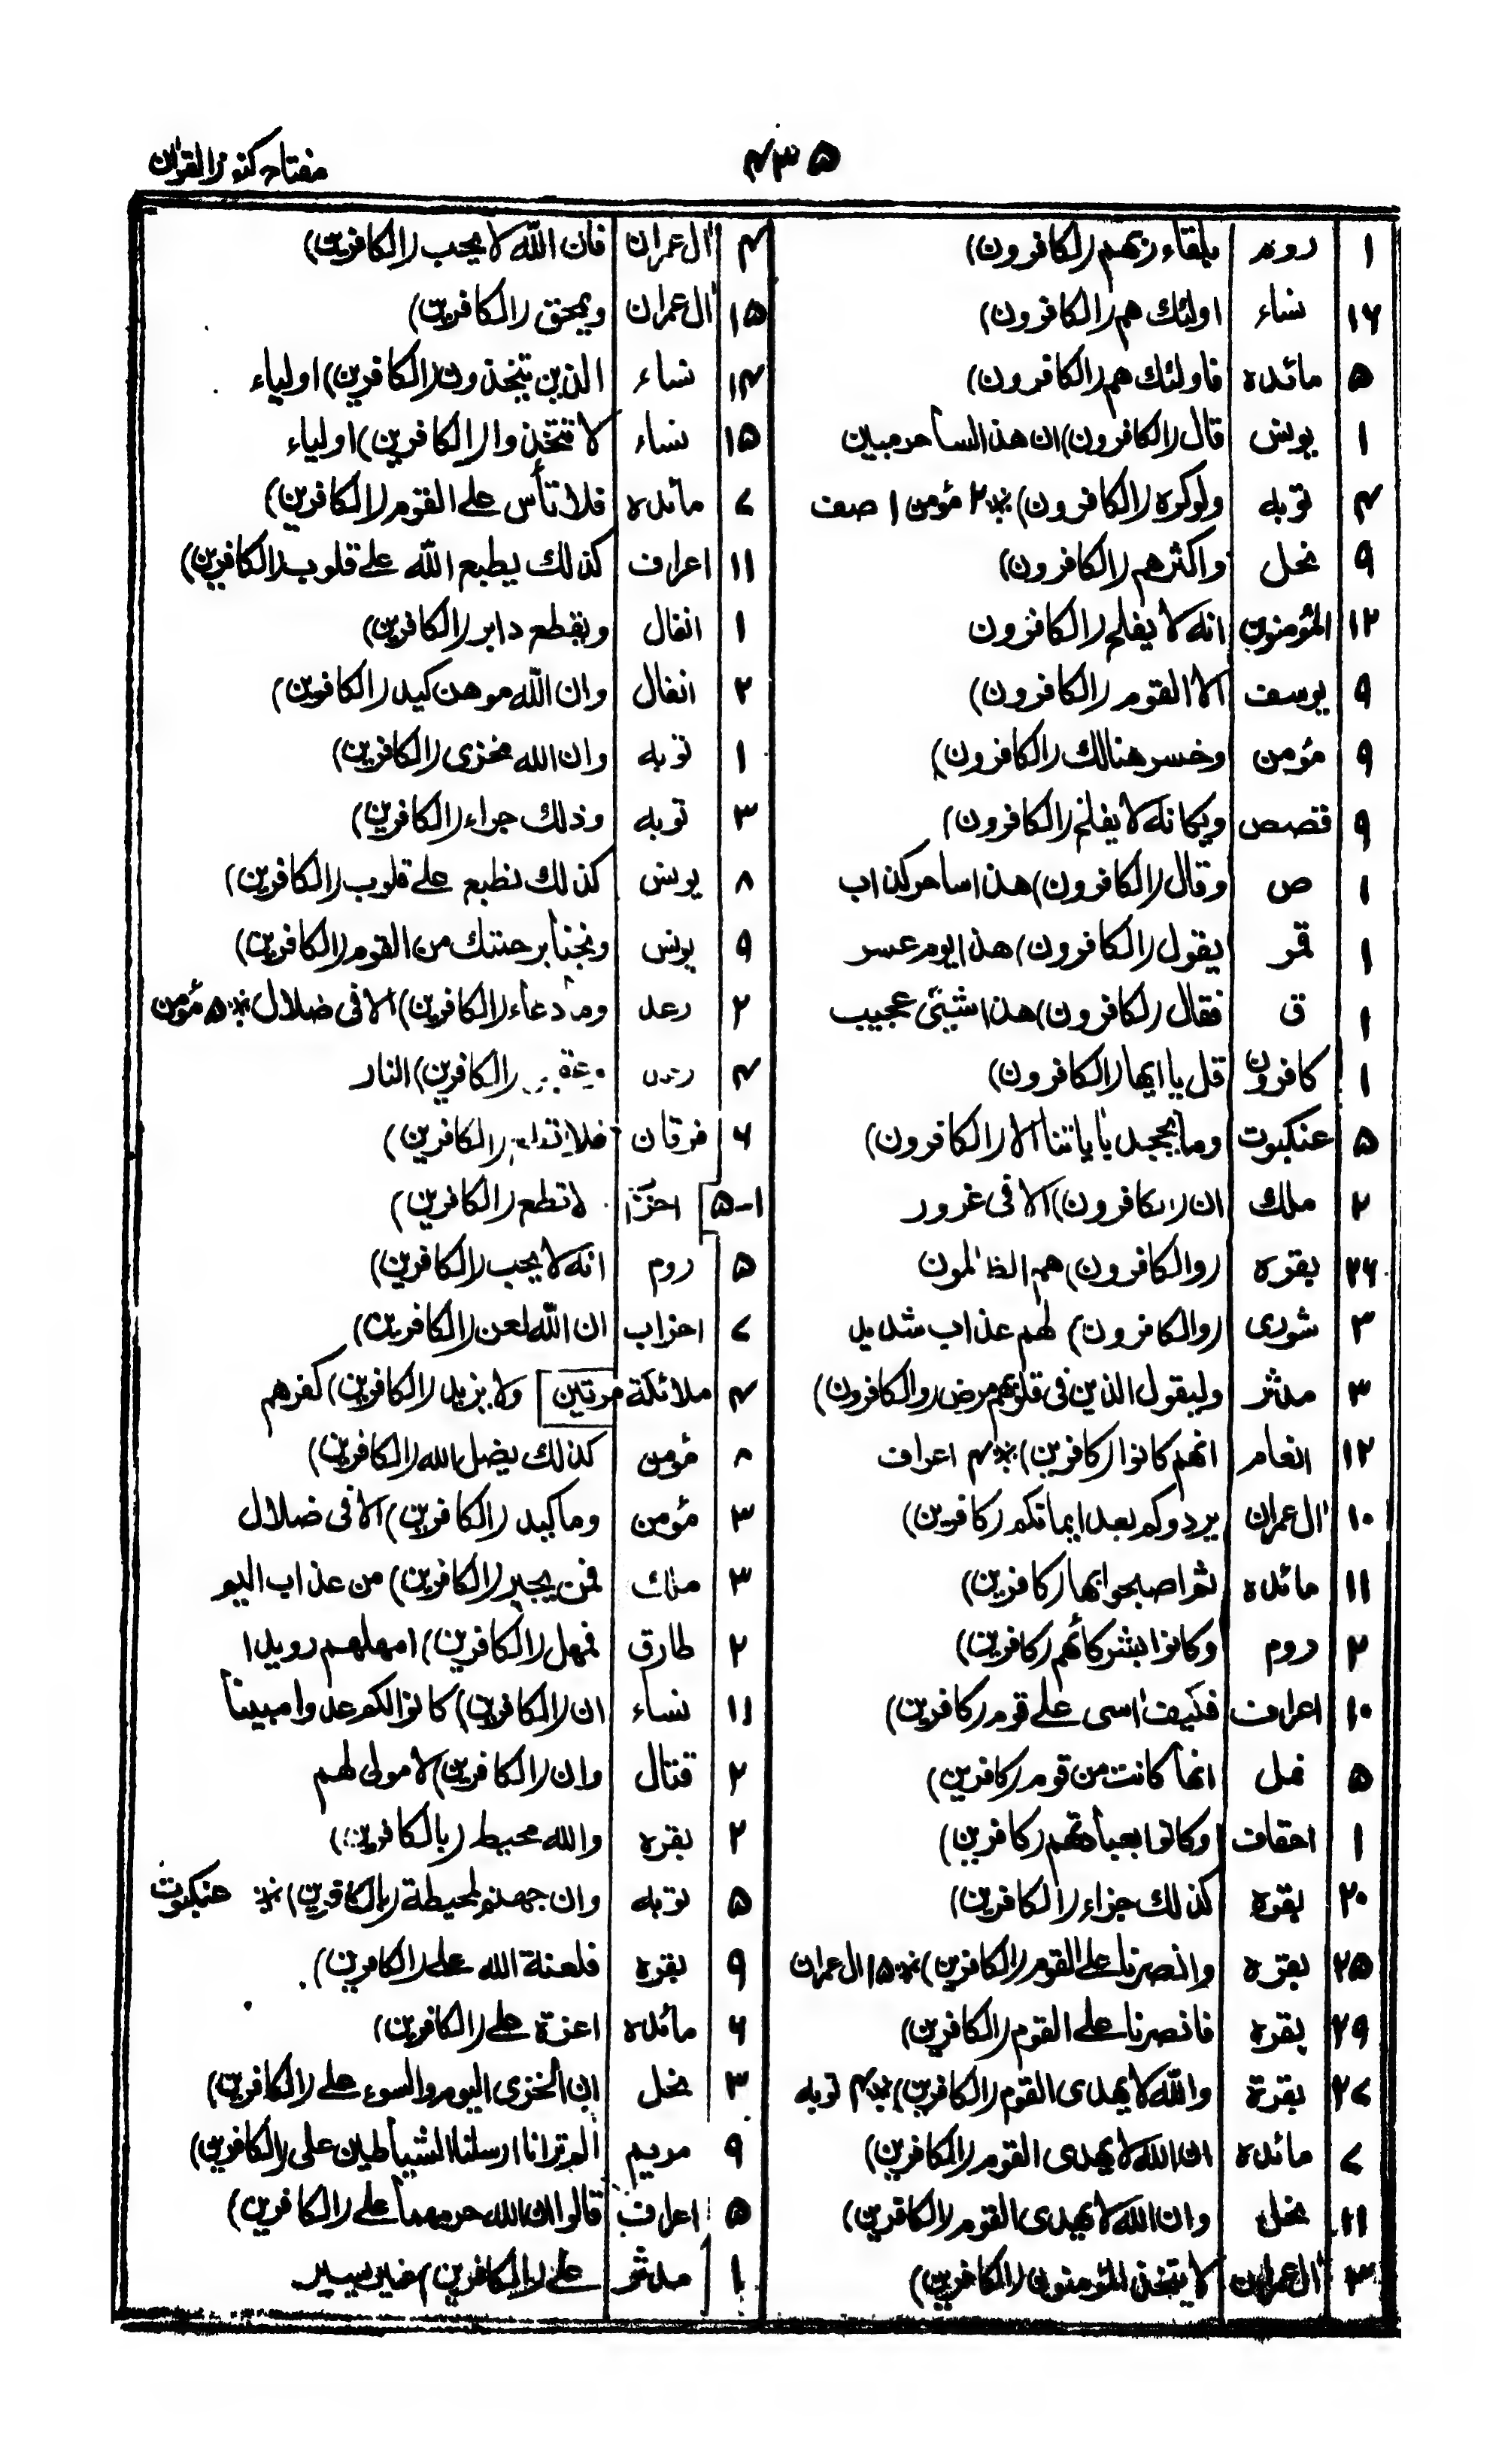 مفتاح كنوز القرآن
۴۳۵
۱ روم بلقاء ربهم (الكافرون)
۱۶ نساء اولئك هم (الكافرون)
۵ مائده فاولئك هم (الكافرون)
۱ يونس قال (الكافرون) ان هذا لساحر مبين
۴ توبه ولوكره (الكافرون) ※ ۲ مؤمن ۱ صف
۹ نحل واكثرهم (الكافرون)
۱۲ المؤمنون انه لا يفلح (الكافرون
۹ يوسف الا القوم (الكافرون)
۹ مؤمن وخسر هنالك (الكافرون)
۹ قصص ويكانه لا يفلح (الكافرون)
۱ ص وقال (الكافرون) هذا ساحر كذاب
۱ قمر يقول (الكافرون) هذا يوم عسر
۱ ق فقال (لكافرون) هذا شيئ عجيب
۱ كافرون قل يا ايها (الكافرون)
۵ عنكبوت وما يجحد بأياتنا الا (الكافرون)
۲ ملك ان (الكافرون) الا فى غرور
۲۶ بقره (والكافرون) هم الظالمون
۳ شورى (والكافرون) لهم عذاب شديد
۳ مدثر وليقول الذين فى قلوبهم مرض (والكافرون)
۱۲ انعام انهم كانوا (كافرين) ※ ۴ اعراف
۱۰ اٰل عمران يردوكم بعد ايمانكم (كافرين)
۱۱ مائده ثم اصبحوا بها (كافرين)
۲ روم وكانوا بشركائهم (كافرين)
۱۰ اعراف فكيف اٰسى على قوم (كافرين)
۵ نمل انها كانت من قوم (كافرين)
۱ احقاف وكانوا بعبادتهم (كافرين)
۲۰ بقره كذلك جزاء (الكافرين)
۲۵ بقره وانصرنا على القوم (الكافرين) ※ ۱۵ ال عمران
۲۹ بقره فانصرنا على القوم (الكافرين)
۲۷ بقرة والله لا يهدى القوم (الكافرين) ※ ۴ توبه
۷ مائده ان الله لا يهدى القوم (الكافرين)
۱۱ نحل وان الله لا يهدى القوم (الكافرين)
۳ اٰل عمران لا يتخذ المؤمنون (الكافرين)
۴ اٰل عمران فان الله لا يحب (الكافرين)
۱۵ اٰل عمران ويمحق (الكافرين)
۱۴ نساء الذين يتخذون (الكافرين) اولياء
۱۵ نساء لا تتخذوا (الكافرين) اولياء
۷ مائده فلا تأس على القوم (الكافرين)
۱۱ اعراف كذلك يطبع الله على قلوب (الكافرين)
۱ انفال ويقطع دابر (الكافرين)
۲ انفال وان الله موهن كيد (الكافرين)
۱ توبه وان الله مخزى (الكافرين)
۳ توبه وذلك جزاء (الكافرين)
۸ يونس كذلك نطبع على قلوب (الكافرين)
۹ يونس ونجنا برحمتك من القوم (الكافرين)
۲ رعد وما دعاء (الكافرين) الا فى ضلال ※ ۵ مؤمن
۴ (الكافرين) النار
۶ فرقان فلا (الكافرين)
۱-۵ لا تطع (الكافرين)
۵ روم انه لا يحب (الكافرين)
۷ احزاب ان الله لعن (الكافرين)
۴ ملائكة مرتين ولا يزيد (الكافرين) كفرهم
۸ مؤمن كذلك يضل الله (الكافرين)
۳ مؤمن وما كيد (الكافرين) الا فى ضلال
۳ ملك فمن يجير (الكافرين) من عذاب اليم
۲ طارق فمهل (الكافرين) امهلهم رويدا
۱۱ نساء ان (الكافرين) كانوا لكم عدوا مبينا
۲ قتال وان (الكافرين) لا مولى لهم
۲ بقره والله محيط (بالكافرين)
۵ توبه وان جهنم لمحيطة (بالكافرين) ※ عنكبوت
۹ بقره فلعنة الله على (الكافرين)
۶ مائده اعزة على (الكافرين)
۳ نحل ان الخزى اليوم والسوء على (الكافرين)
۹ مريم الم تر انا ارسلنا الشياطين على (الكافرين)
۵ اعراف قالوا ان الله حرمهما على (الكافرين)
۱ مدثر على (الكافرين) غير يسير